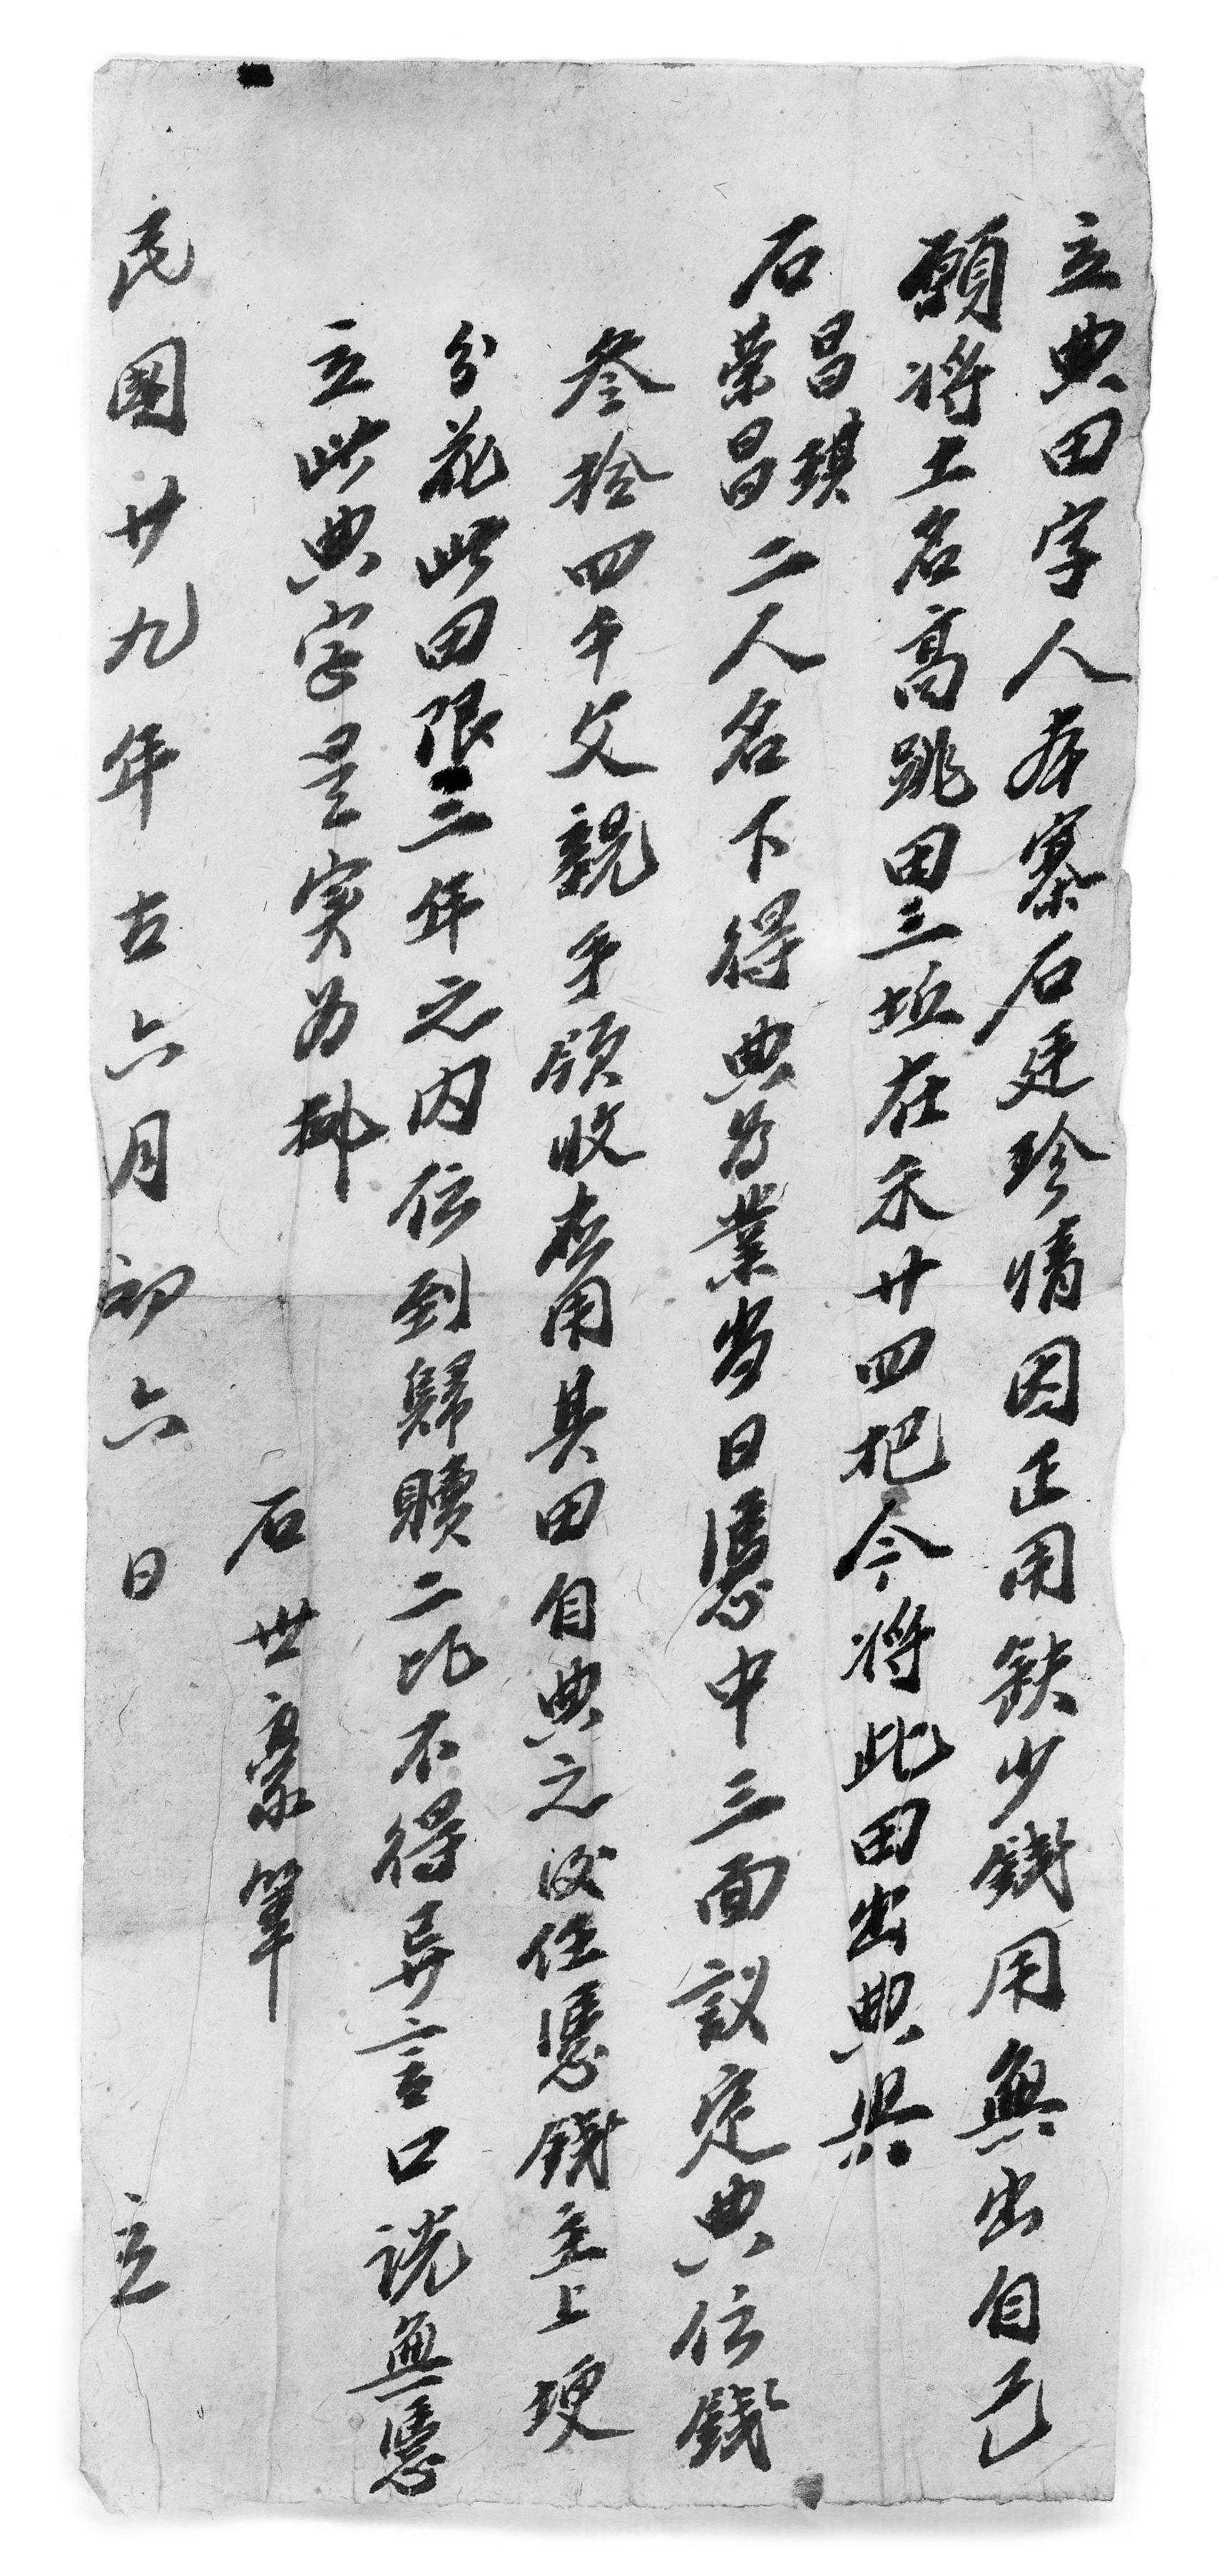 立典田字人本寨石廷珍情因正用缺少錢用無出自己
願将土名高跳田三坵在禾廿四把今将此田出典與
石昌琪榮昌二人名下得典為業当日憑中三面議定典价錢
叁拾四千文親手領收应用其田自典之後任憑錢主上埂
分花此田限三年之内价到歸贖二比不得异言口说無憑
立此典字是实為挷
石世豪筆
民國廿九年古六月初六日立